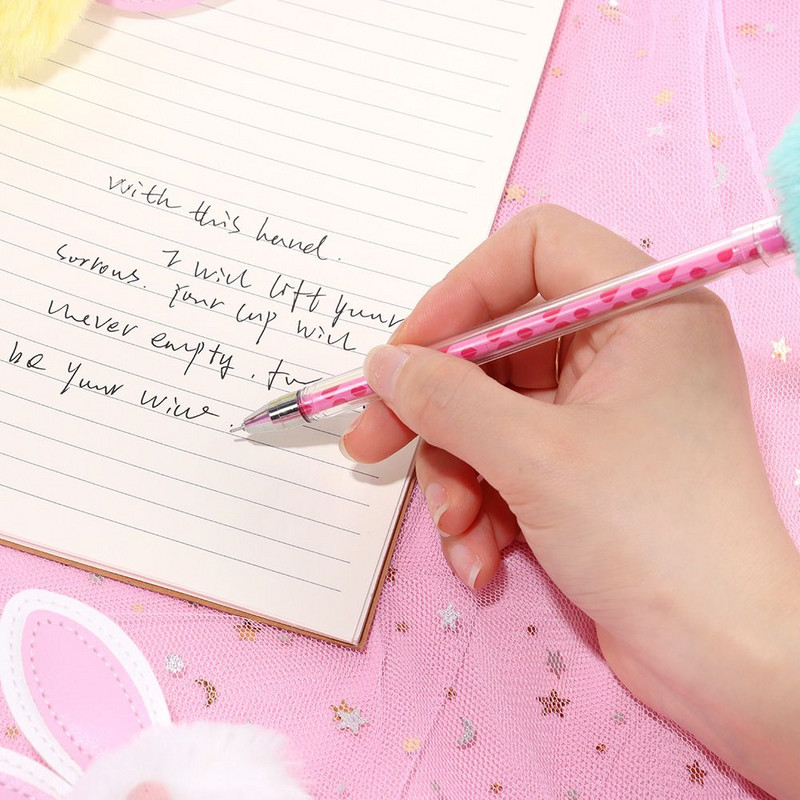 with this hand.
I will lift your
surrous. Your cup will
never empty. for
be your wine.